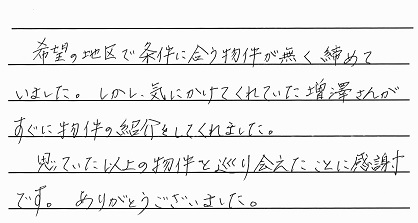 希望の地区で条件に合う物件が無く締めて
いました。しかし、気にかけてくれていた増澤さんが
すぐに物件の紹介をしてくれました。
思っていた以上の物件と巡り会えたことに感謝
です。ありがとうございました。